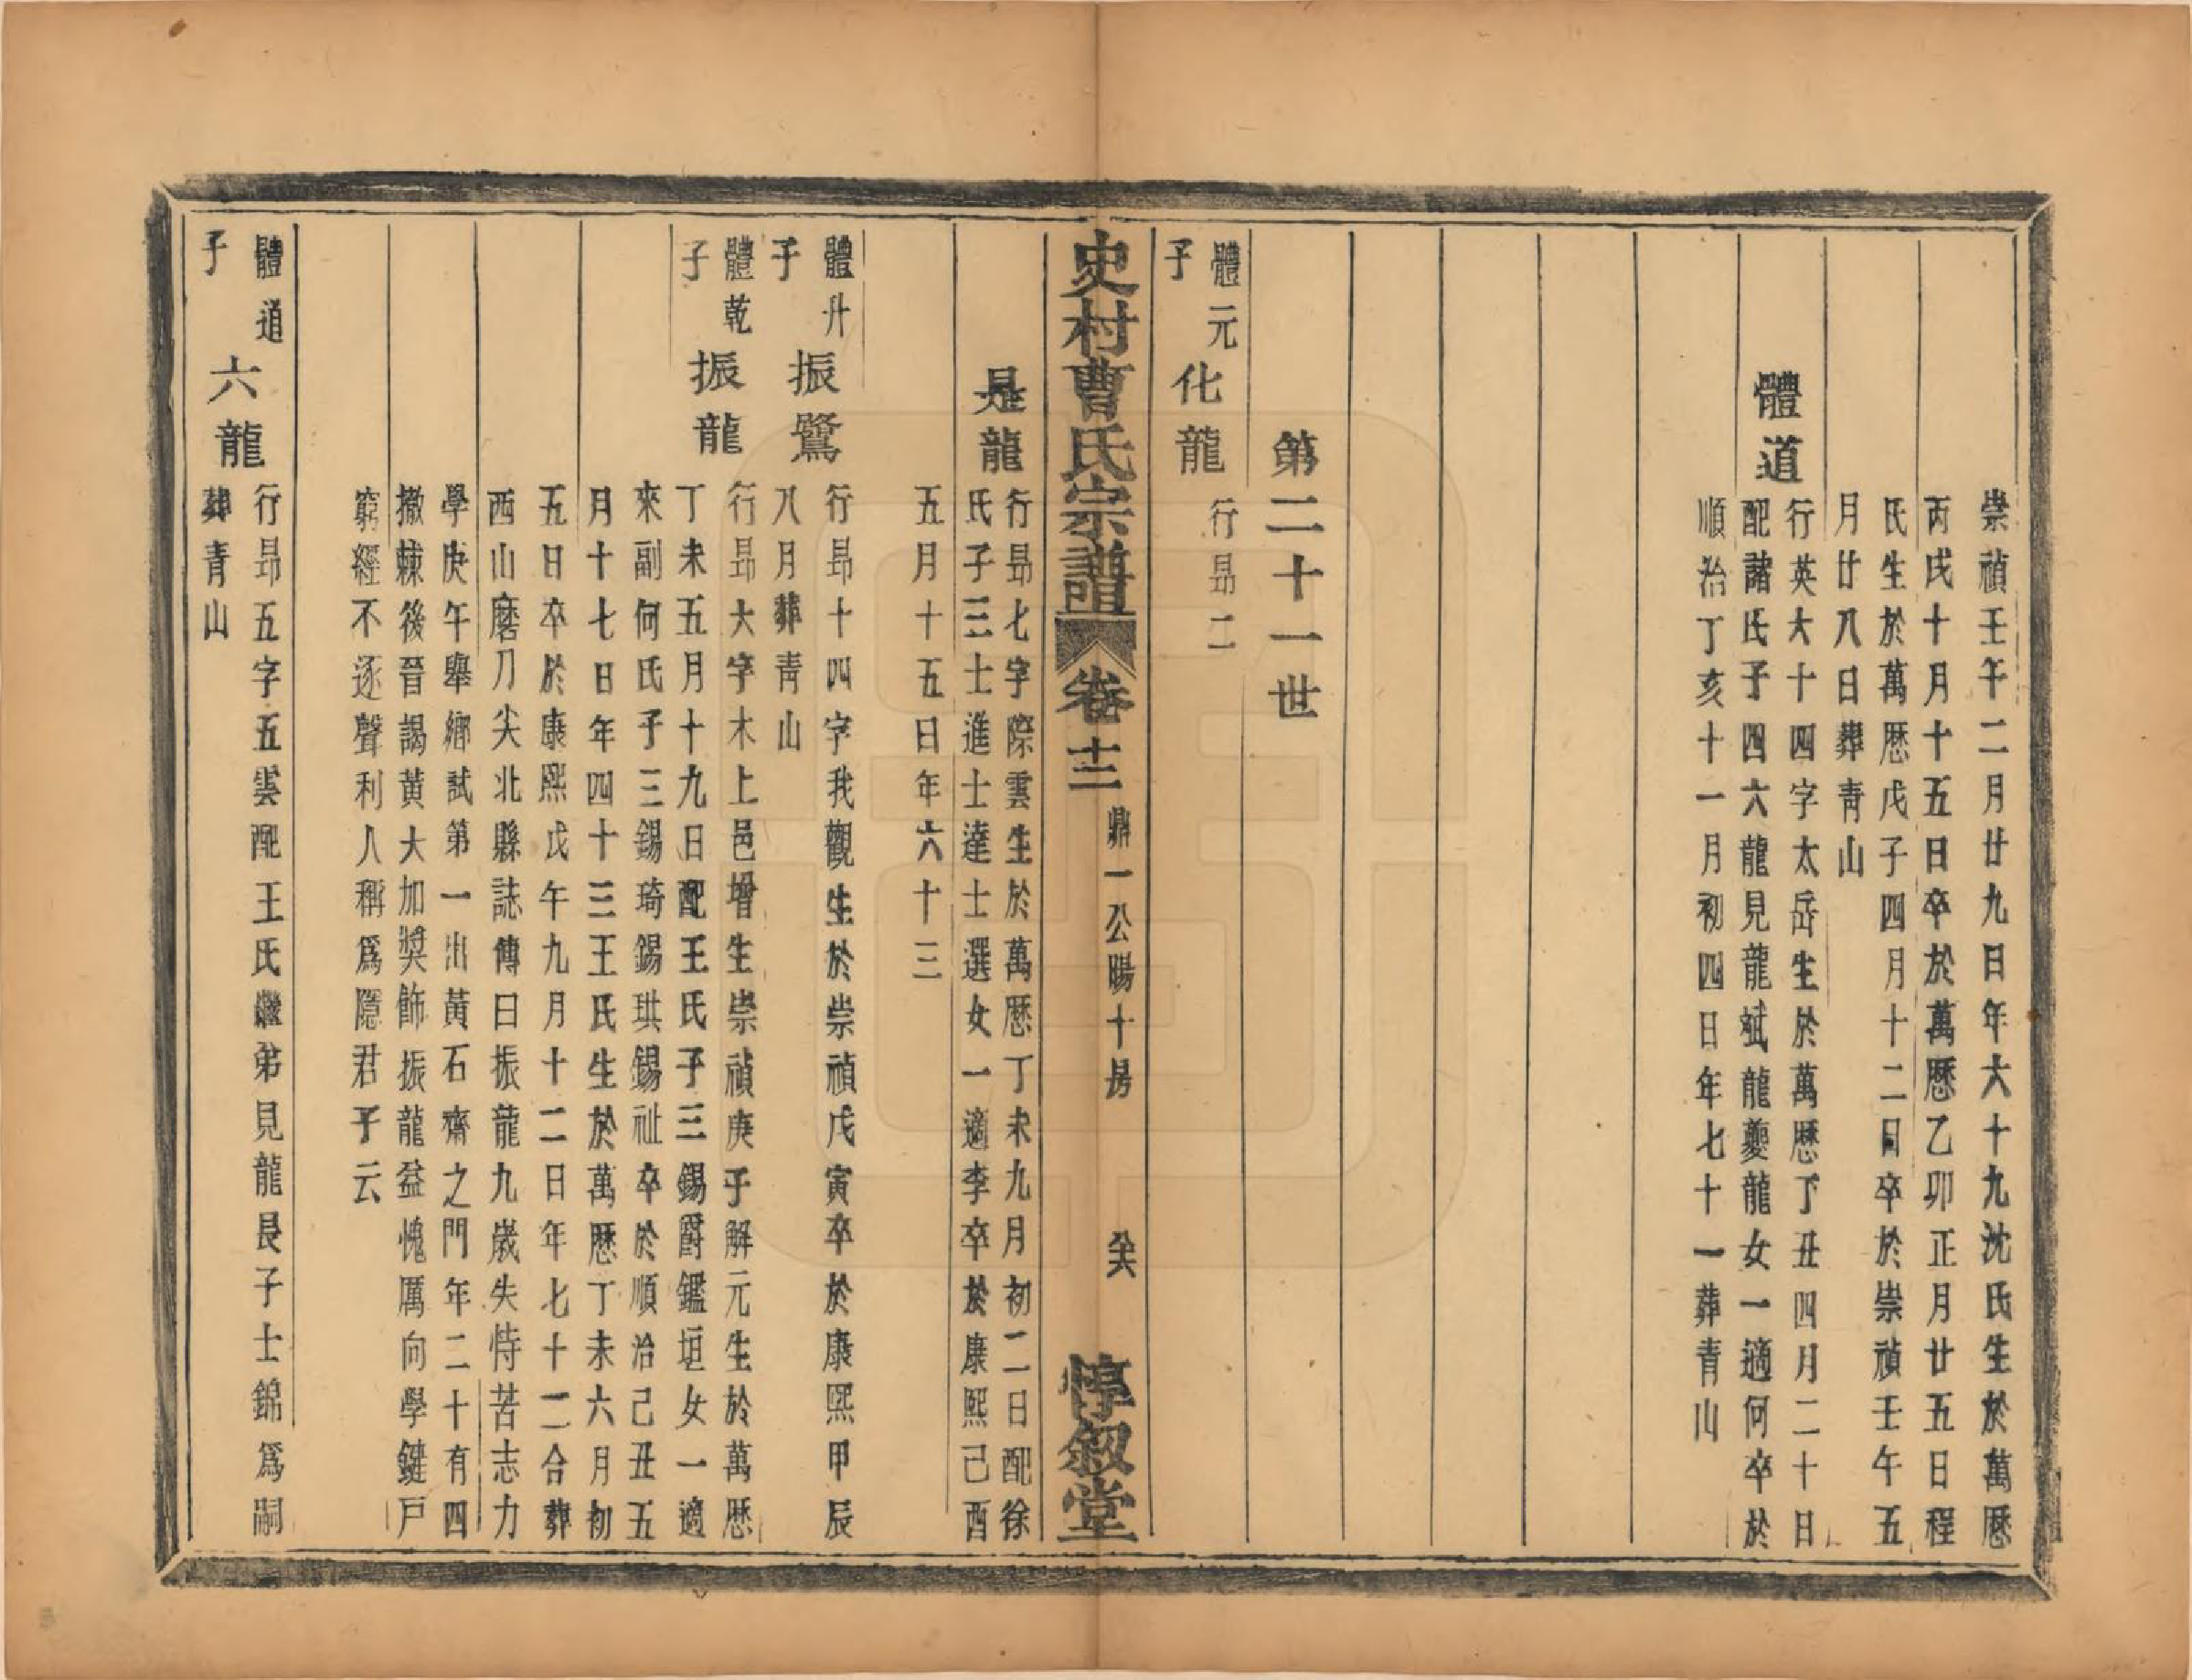 崇禎壬午二月廿九日年六十九沈氏生於萬厯
丙戌十月十五日卒於萬厯乙卯正月廿五日程
氏生於萬厯戊子四月十二日卒於崇禎壬午五
月廿八日葬青山
體道
行英大十四字太岳生於萬厯丁丑四月二十日
配諸氏子四六龍見龍斌龍夔龍女一適何卒於
順治丁亥十一月初四日年七十一葬青山
第二十一世
體元
子
化龍
行昻二
史村曹氏宗譜
卷十二
鼎一公暘十房
惇敘堂
是龍
行昻七字際雲生於萬厯丁未九月初二日配徐
氏子三士進士達士選女一適李卒於康熙己酉
五月十五日年六十三
體升
子
振鷺
行昻十四字我觀生於崇禎戊寅卒於康熙甲辰
八月葬青山
體乾
子
振龍
行昻大字木上邑增生崇禎庚子解元生於萬厯
丁未五月十九日配王氏子三錫爵鑑垣女一適
來副何氏子三錫琦錫珙錫祉卒於順治己丑五
月十七日年四十三王氏生於萬厯丁未六月初
五日卒於康熙戊午九月十二日年七十二合葬
西山磨刀尖北縣誌傳曰振龍九歲失恃苦志力
學庚午舉鄉試第一出黃石齋之門年二十有四
撤棘後晉謁黃大加奬飾振龍益愧厲向學鍵戸
窮經不逐聲利人稱爲隱君子云
體道
子
六龍
行昻五字五雲配王氏繼弟見龍長子士錦爲嗣
葬青山